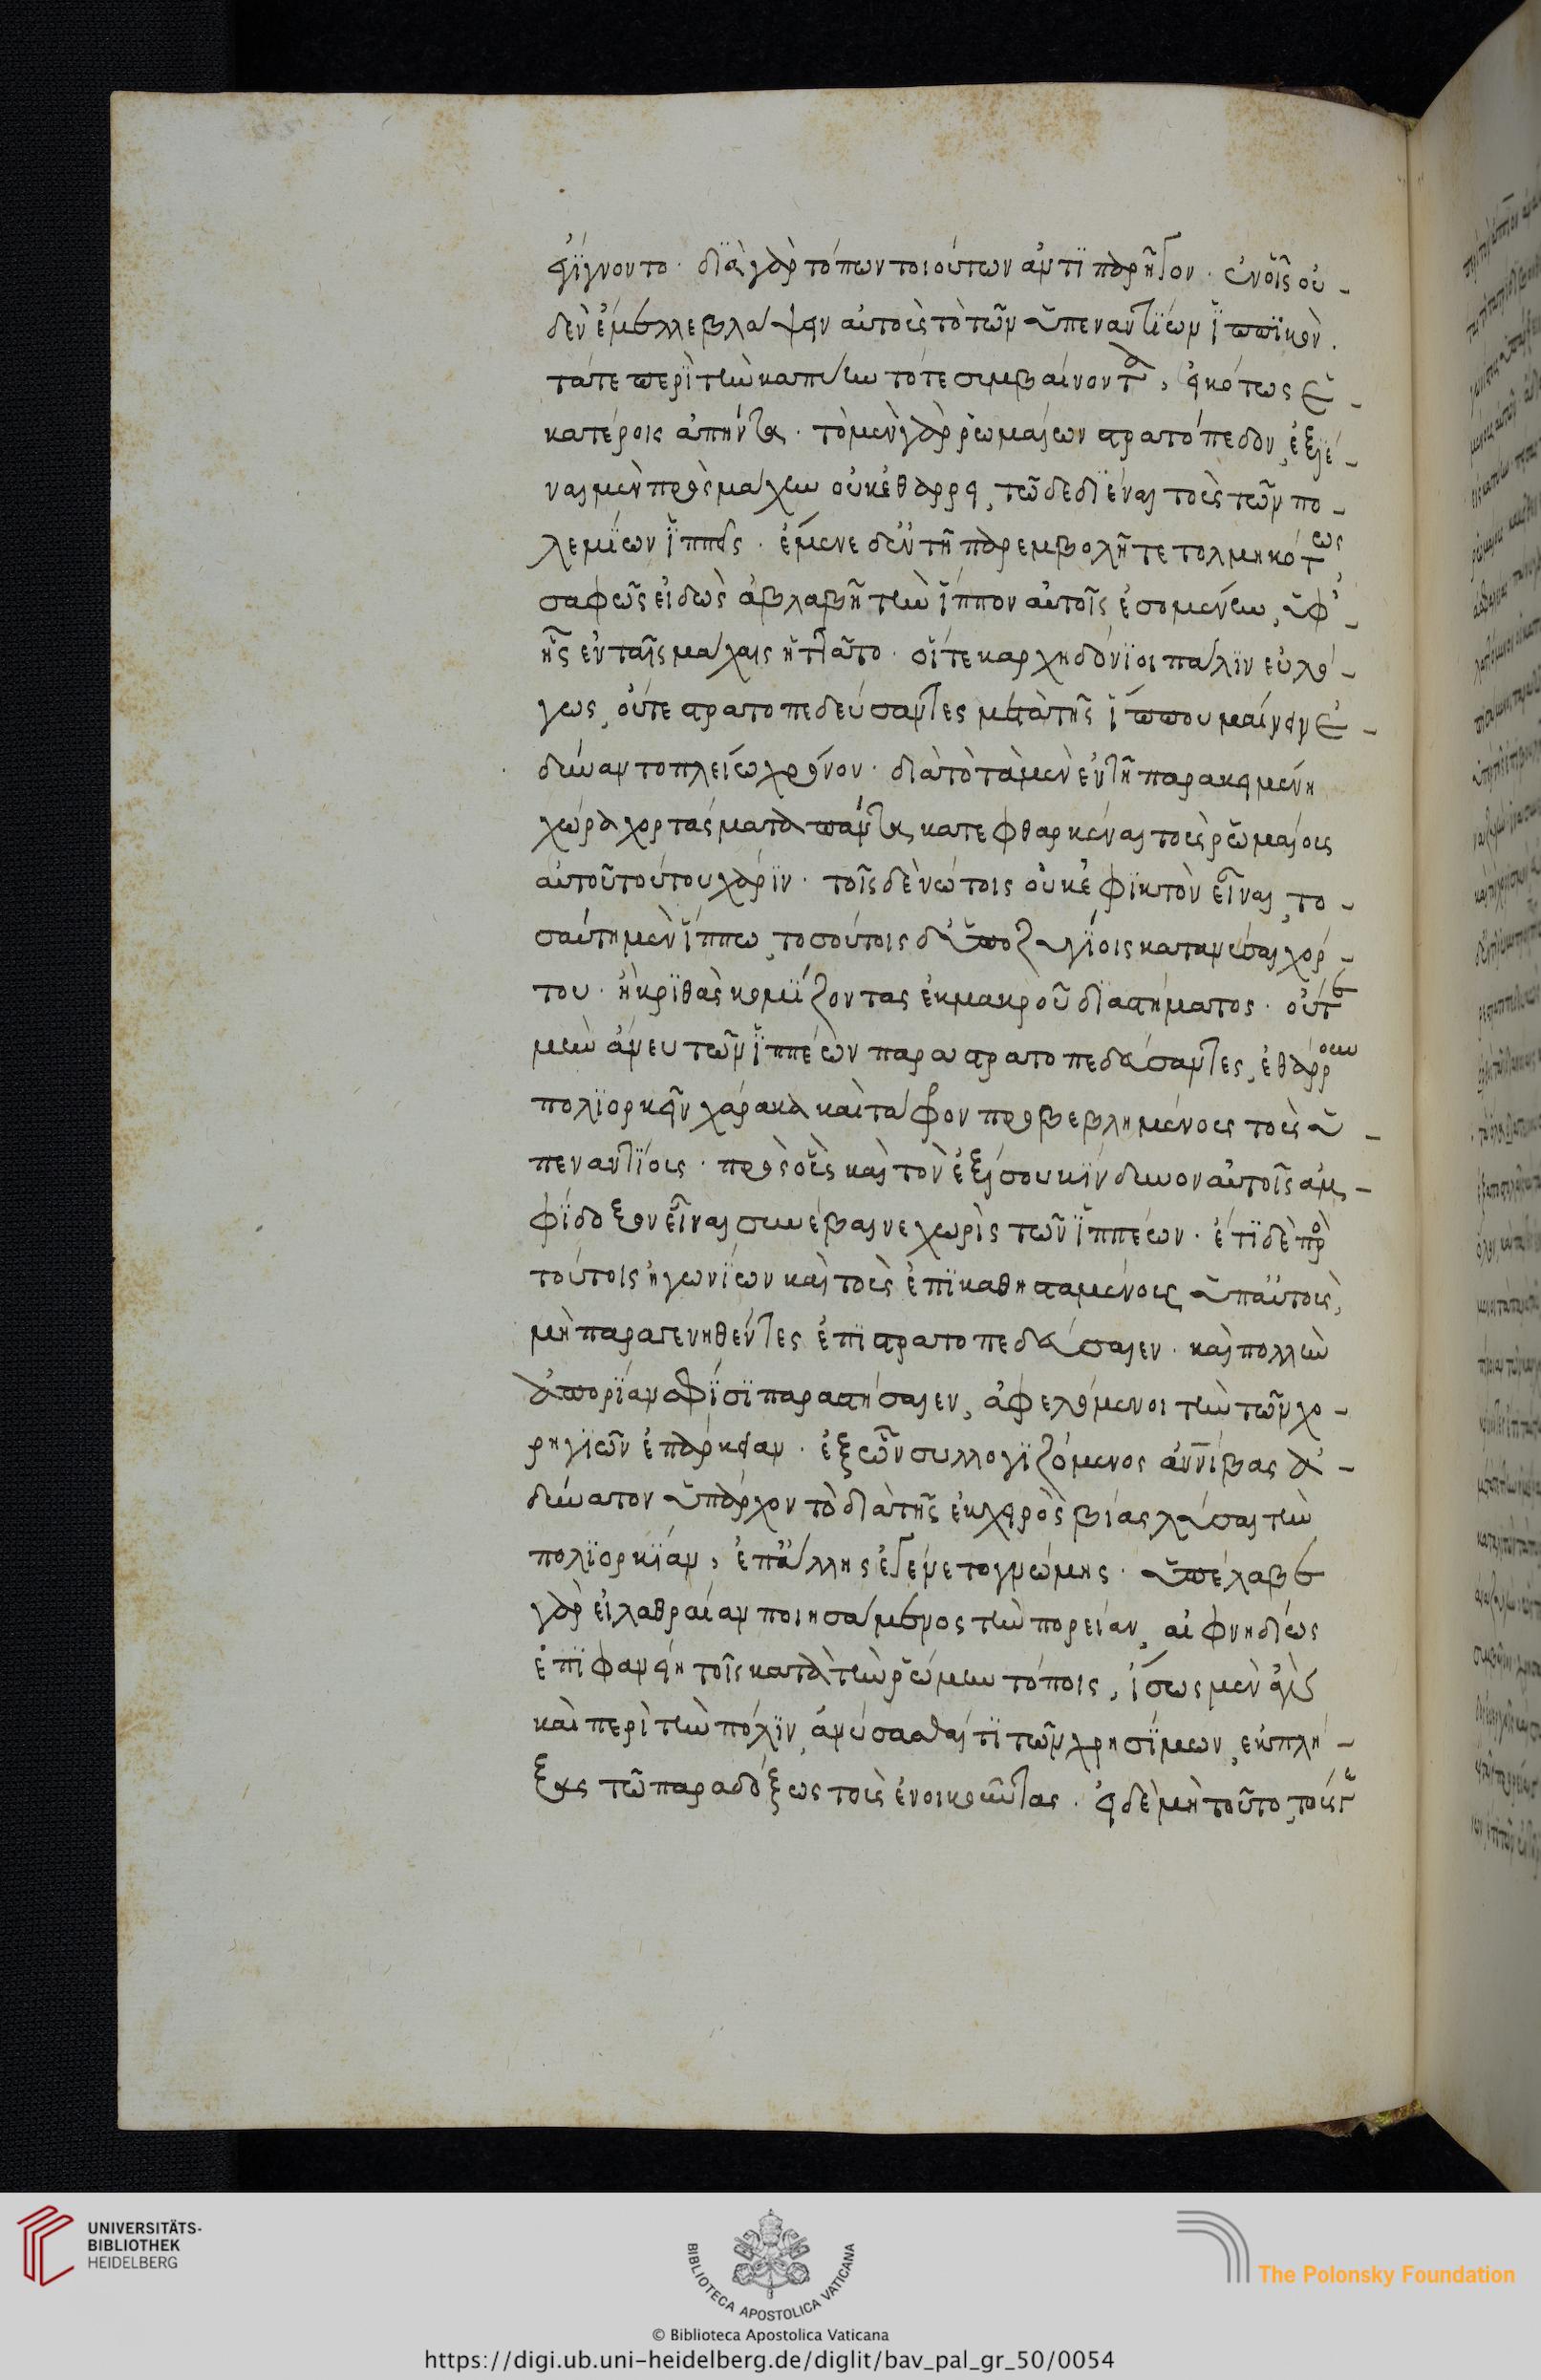 γίγνοντο· διὰ γὰρ τόπων τοιούτων ἀντιπαρῆγον· ἐν οἷς οὐ-
δὲν ἔμελλε βλάψειν αὐτοὺς τὸ τῶν ὑπεναντίων ἱππικόν.
τά τε περὶ τὴν καπύην τότε συμβαίνοντα, εἰκότως ἑ-
κατέροις ἀπήντα· τὸ μὲν γὰρ ῥωμαίων στρατόπεδον, ἐξιέ-
ναι μὲν πρὸς μάχην οὐκ ἐθάρρει, τῶ δεδιέναι τοὺς τῶν πο-
λεμίων ἱππεῖς· ἔμενε δ' ἐν τῆ παρεμβολῆ τετολμηκότως
σαφῶς εἰδὼς ἀβλαβῆ τὴν ἵππον αὐτοῖς ἐσομένην, ὑφ'
ἧς ἐν ταῖς μάχαις ἡττᾶτο· οἵ τε καρχηδόνιοι πάλιν εὐλό-
γως, οὔτε στρατοπεδεύσαντες μετὰ τῆς ἵππου μαίνειν ἐ-
δύναντο πλείω χρόνον· διὰ τὸ τὰ μὲν ἐν τῆ παρακειμένη
χώρα χορτάσματα πάντα κατεφθαρκέναι τοὺς ῥωμαίους
αὐτοῦ τούτου χάριν· τοῖς δὲ νώτοις οὐκ ἐφικτὸν εἶναι, το-
σαύτη μὲν ἵππω, τοσούτοις δ' ὑποζυγίοις κατανύσαι χόρ-
του· ἢ κριθὰς κομίζοντας ἐκ μακροῦ διαστήματος· οὔτε
μὴν ἄνευ τῶν ἱππέων παραστρατοπεδεύσαντες, ἐθάρρουν
πολιορκεῖν χάρακα καὶ τάφον προβεβλημένους τοὺς ὑ-
πεναντίους· πρὸς οὓς καὶ τὸν ἐξ ἴσου κίνδυνον αὐτοῖς ἀμ-
φίδοξον εἶναι συνέβαινε χωρὶς τῶν ἱππέων· ἔτι δὲ πρὸ
τούτοις ἠγωνίων καὶ τοὺς ἐπικαθησταμένους ὑπάτους,
μὴ παραγενηθέντες ἐπιστρατοπεδεύσαιεν· καὶ πολλὴν
ἀπορίαν σφίσι παραστήσαιεν, ἀφελόμενοι τὴν τῶν χο-
ρηγιῶν ἐπάρκειαν· ἐξ ὧν συλλογιζόμενος ἀννίβας ἀ-
δύνατον ὑπάρχον τὸ διὰ τῆς ἐκ χειρὸς βίας λῦσαι τὴν
πολιορκίαν, ἐπ' ἄλλης ἐγένετο γνώμης· ὑπέλαβε
γὰρ εἰ λαθραίαν ποιησάμενος τὴν πορείαν, αἰφνηδίως
ἐπιφανείη τοῖς κατὰ τὴν ῥώμην τόποις, ἴσως μὲν
καὶ περὶ τὴν πόλιν, ἀνύσασθαί τι τῶν χρησίμων, ἐκπλή-
ξας τῶ παραδόξως τοὺς ἐνοικοῦντας· εἰ δὲ μὴ τοῦτο, τούς γε
UNIVERSITÄTS-
BIBLIOTHEK
HEIDELBERG
BIBLIOTECA APOSTOLICA VATICANA
The Polonsky Foundation
© Biblioteca Apostolica Vaticana
https://digi.ub.uni-heidelberg.de/diglit/bav_pal_gr_50/0054